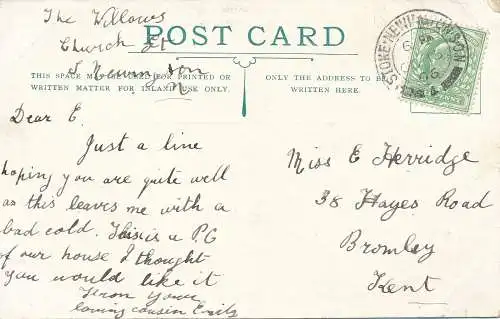 The Willows
Church St
S Newington
N
POST CARD
THIS SPACE MAY BE USED FOR PRINTED OR
WRITTEN MATTER FOR INLAND USE ONLY.
ONLY THE ADDRESS TO BE
WRITTEN HERE.
STOKE-NEWINGTON
06
Dear E.
Just a line
hoping you are quite well
as this leaves me with a
bad cold. This is a P.C
of our house I thought
you would like it
From your
loving cousin Emily
Miss E Herridge
38 Hayes Road
Bromley
Kent